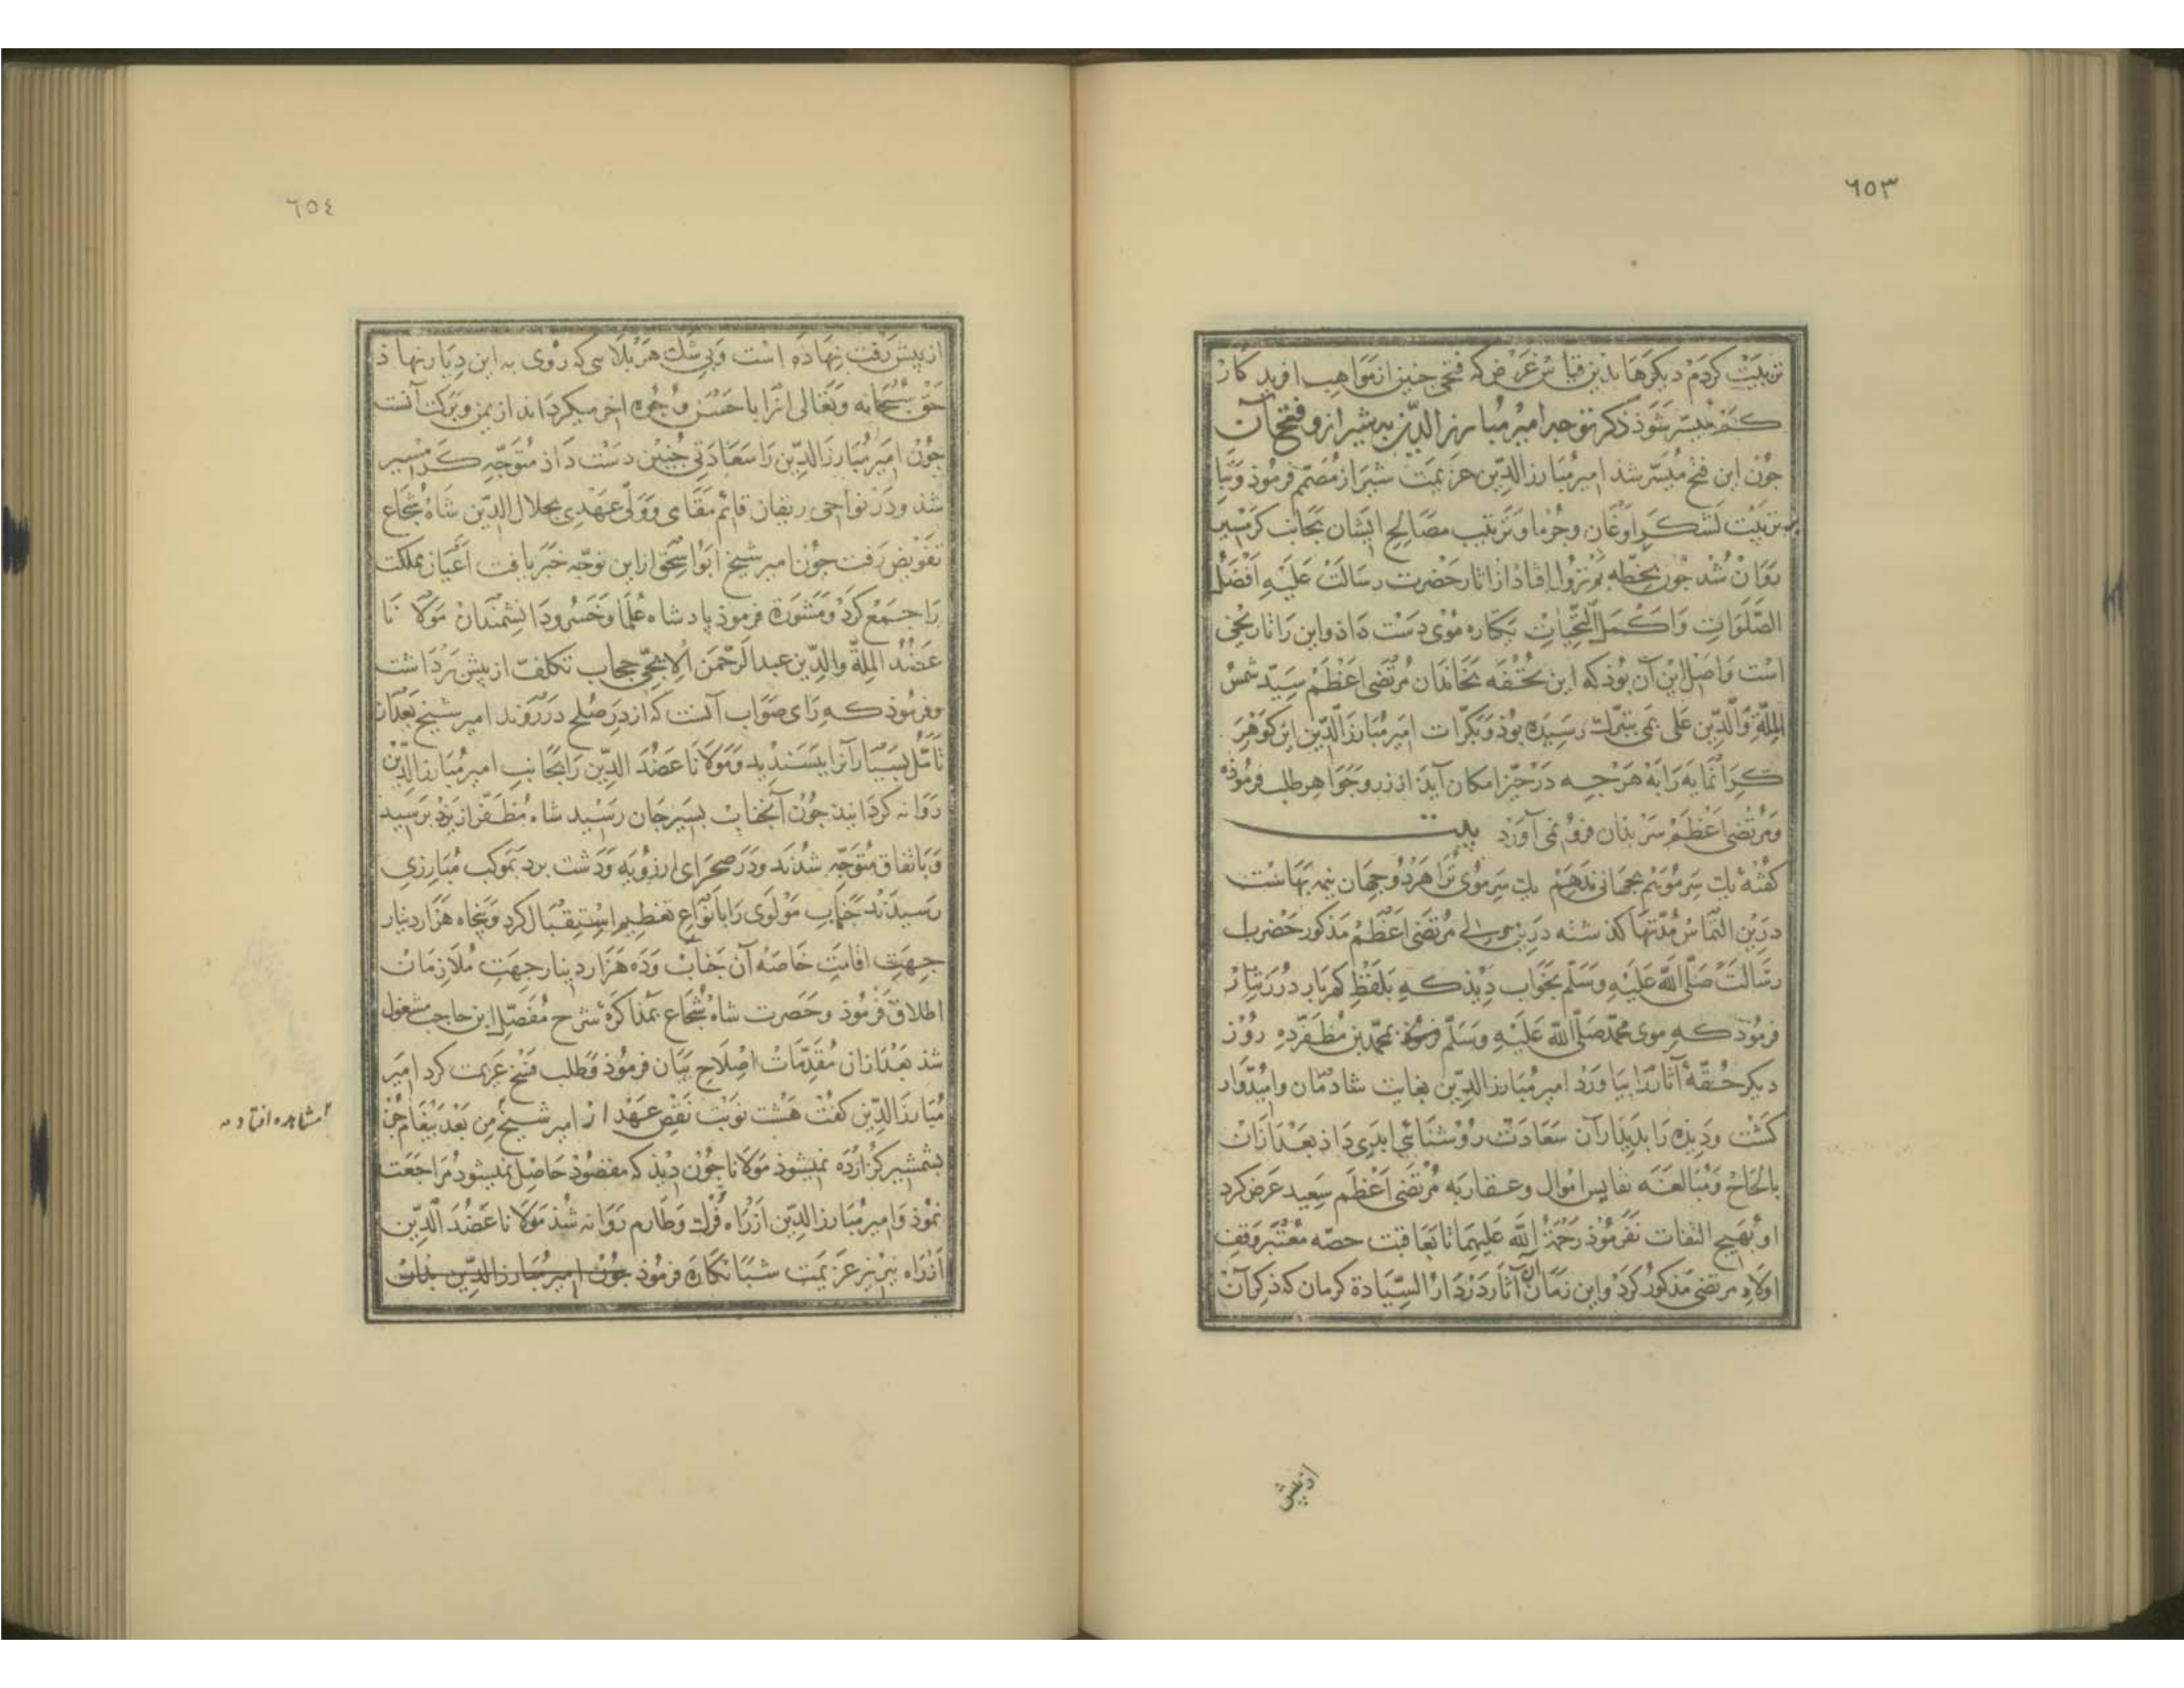 ٦٥٣
تربیت کردم دیکرها بذین قیاس غرض که فتحی جنین از مواهب افرید کار
کم میسر شوذ ذکر توجه امیر مبارز الدین به شیراز و فتح آن
جون این فتح میسر شذ امیر مبارز الدین عزیمت شیراز مصمم فرموذ و بنا
بر تربیت لشکر اوغان و جرما و ترتیب مصالح ایشان بجانب کرمسیر
روان شد جون بخطه بم نزول افتاد از اثار حضرت رسالت علیه افضل
الصلوات واکمل التحیات یکتاره موی دست داذ و این را تاریخی
است و اصل این آن بوذ که این تحفه بخاندان مرتضی اعظم سید شمس
الملة والدین علی بمی بتبرک رسیده بوذ و بکرات امیر مبارز الدین این کوهر
کرانمایه را به هرجه در حیز امکان آید از زر و جواهر طلب فرموذه
و مرتضی اعظم سر بذان فرو نمی آورد بیت
کفتۀ یک سر مویم بجهانی ندهم یک سر موی ترا هر دو جهان نیم بهاست
درین التماس مدتها کذشته درین مرتضی اعظم مذکور حضرت
رسالت صلی الله علیه وسلم بخواب دیذ که بلفظ کهربار دررنثار
فرموذ که موی محمد صلی الله علیه وسلم بمحمد بن مظفر ده روز
دیکر حقۀ آثار را بیاورد امیر مبارز الدین بغایت شادمان وامیدوار
کشت و دیذه را بدیذار آن سعادت روشنائی ابدی داذ بعد ازان
بالحاح و مبالغه نفایس اموال و عقار به مرتضی اعظم سعید عرض کرد
او بهیج التفات نفرموذ رحمة الله علیهما تا بعاقبت حصه معتبر وقف
اولاد مرتضی مذکور کرد و این زمان آن آثار در دار السیادة کرمان که ذکر آن
از پیش
٦٥٤
از پیش رفت نهاذه است و بی شک هر بلا سی که روی به این دیار نهاذ
حق سبحانه و تعالی انرا باحسن وجوه اخر میکرداند از یمن و برکت آنست
جون امیر مبارز الدین را سعادتی جنین دست داذ متوجه کرمسیر
شذ و در نواحی ریقان قائم مقامی و ولی عهدی بجلال الدین شاه شجاع
تفویض رفت جون امیر شیخ ابو اسحق از این توجه خبر یافت اعیان مملکت
را جمع کرد و مشورة فرموذ پادشاه علما و خسرو دانشمندان مولانا
عضد الملة والدین عبد الرحمن الایجی حجاب تکلف از پیش برداشت
و فرموذ که رای صواب آنست که از در صلح در روند امیر شیخ بعد از
تأمل بسیار آنرا پسندید و مولانا عضد الدین را بجانب امیر مبارز الدین
روانه کردانید جون آنجناب بسیرجان رسید شاه مظفر از یزد برسید
و باتفاق متوجه شدند و در صحرای ارزویه و دشت برد بموکب مبارزی
رسیدند جناب مولوی را بانواع تعظیم استقبال کرد و پنجاه هزار دینار
جهت اقامت خاصه آن جناب و ده هزار دینار جهت ملازمان
اطلاق فرموذ و حضرت شاه شجاع بمذاکرۀ شرح مفصل ابن حاجب مشغول
شذ بعد ازان مقدمات اصلاح بیان فرموذ و طلب فسخ عزیمت کرد امیر
مبارز الدین کفت هشت نوبت نقض عهد از امیر شیخ من بعد پیغام جز
بشمشیر کزارده نمیشوذ مولانا جون دیذ که مقصوذ حاصل نمیشود مراجعت
نموذ و امیر مبارز الدین از راه فرک و طارم روانه شذ مولانا عضد الدین
از راه نیریز عزیمت شبانکاره فرموذ جون امیر مبارز الدین بذان
مشاهده افتاده